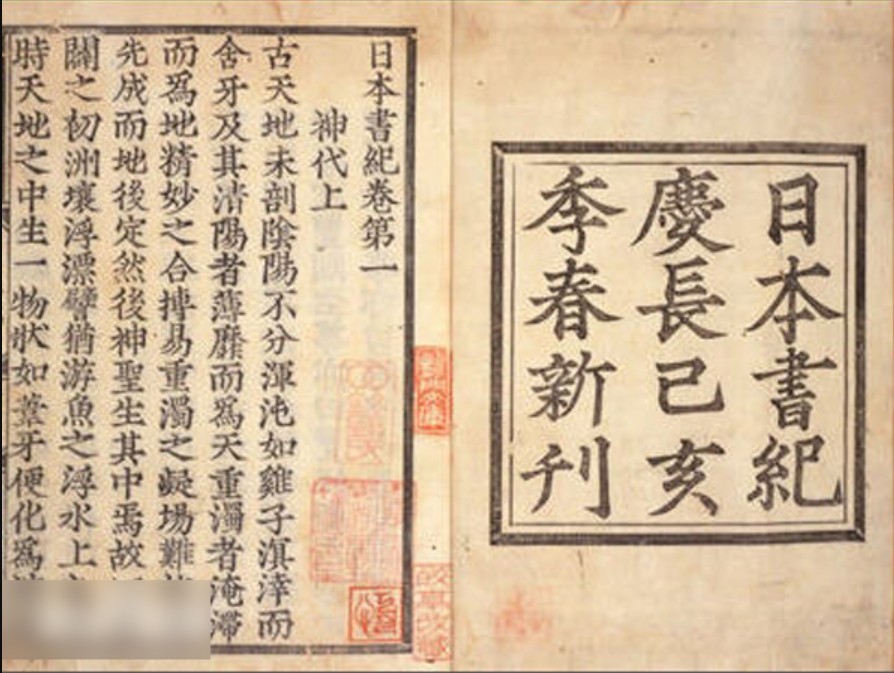 日本書紀
慶長己亥
季春新刊
日本書紀卷第一
神代上
古天地未剖陰陽不分渾沌如雞子溟涬而
含牙及其清陽者薄靡而爲天重濁者淹滯
而爲地精妙之合摶易重濁之凝埸難
先成而地後定然後神聖生其中焉故
闢之初洲壤浮漂譬猶游魚之浮水上
時天地之中生一物狀如葦牙便化爲